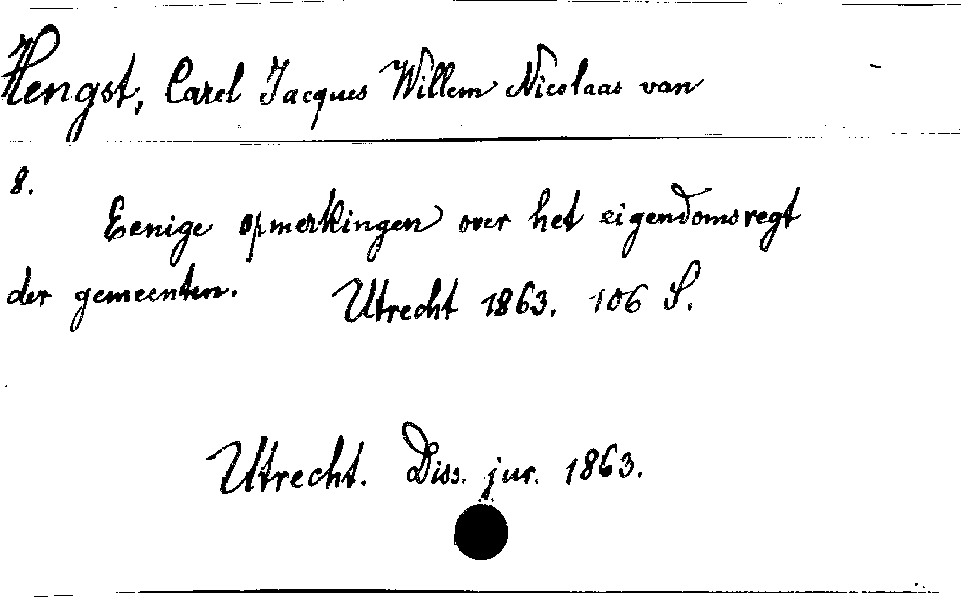 Hengst, Carel Jacques Willem Nicolaas van
8.
Eenige opmerkingen over het eigendomsregt
der gemeenten. Utrecht 1863. 106 S.
Utrecht. Diss. jur. 1863.